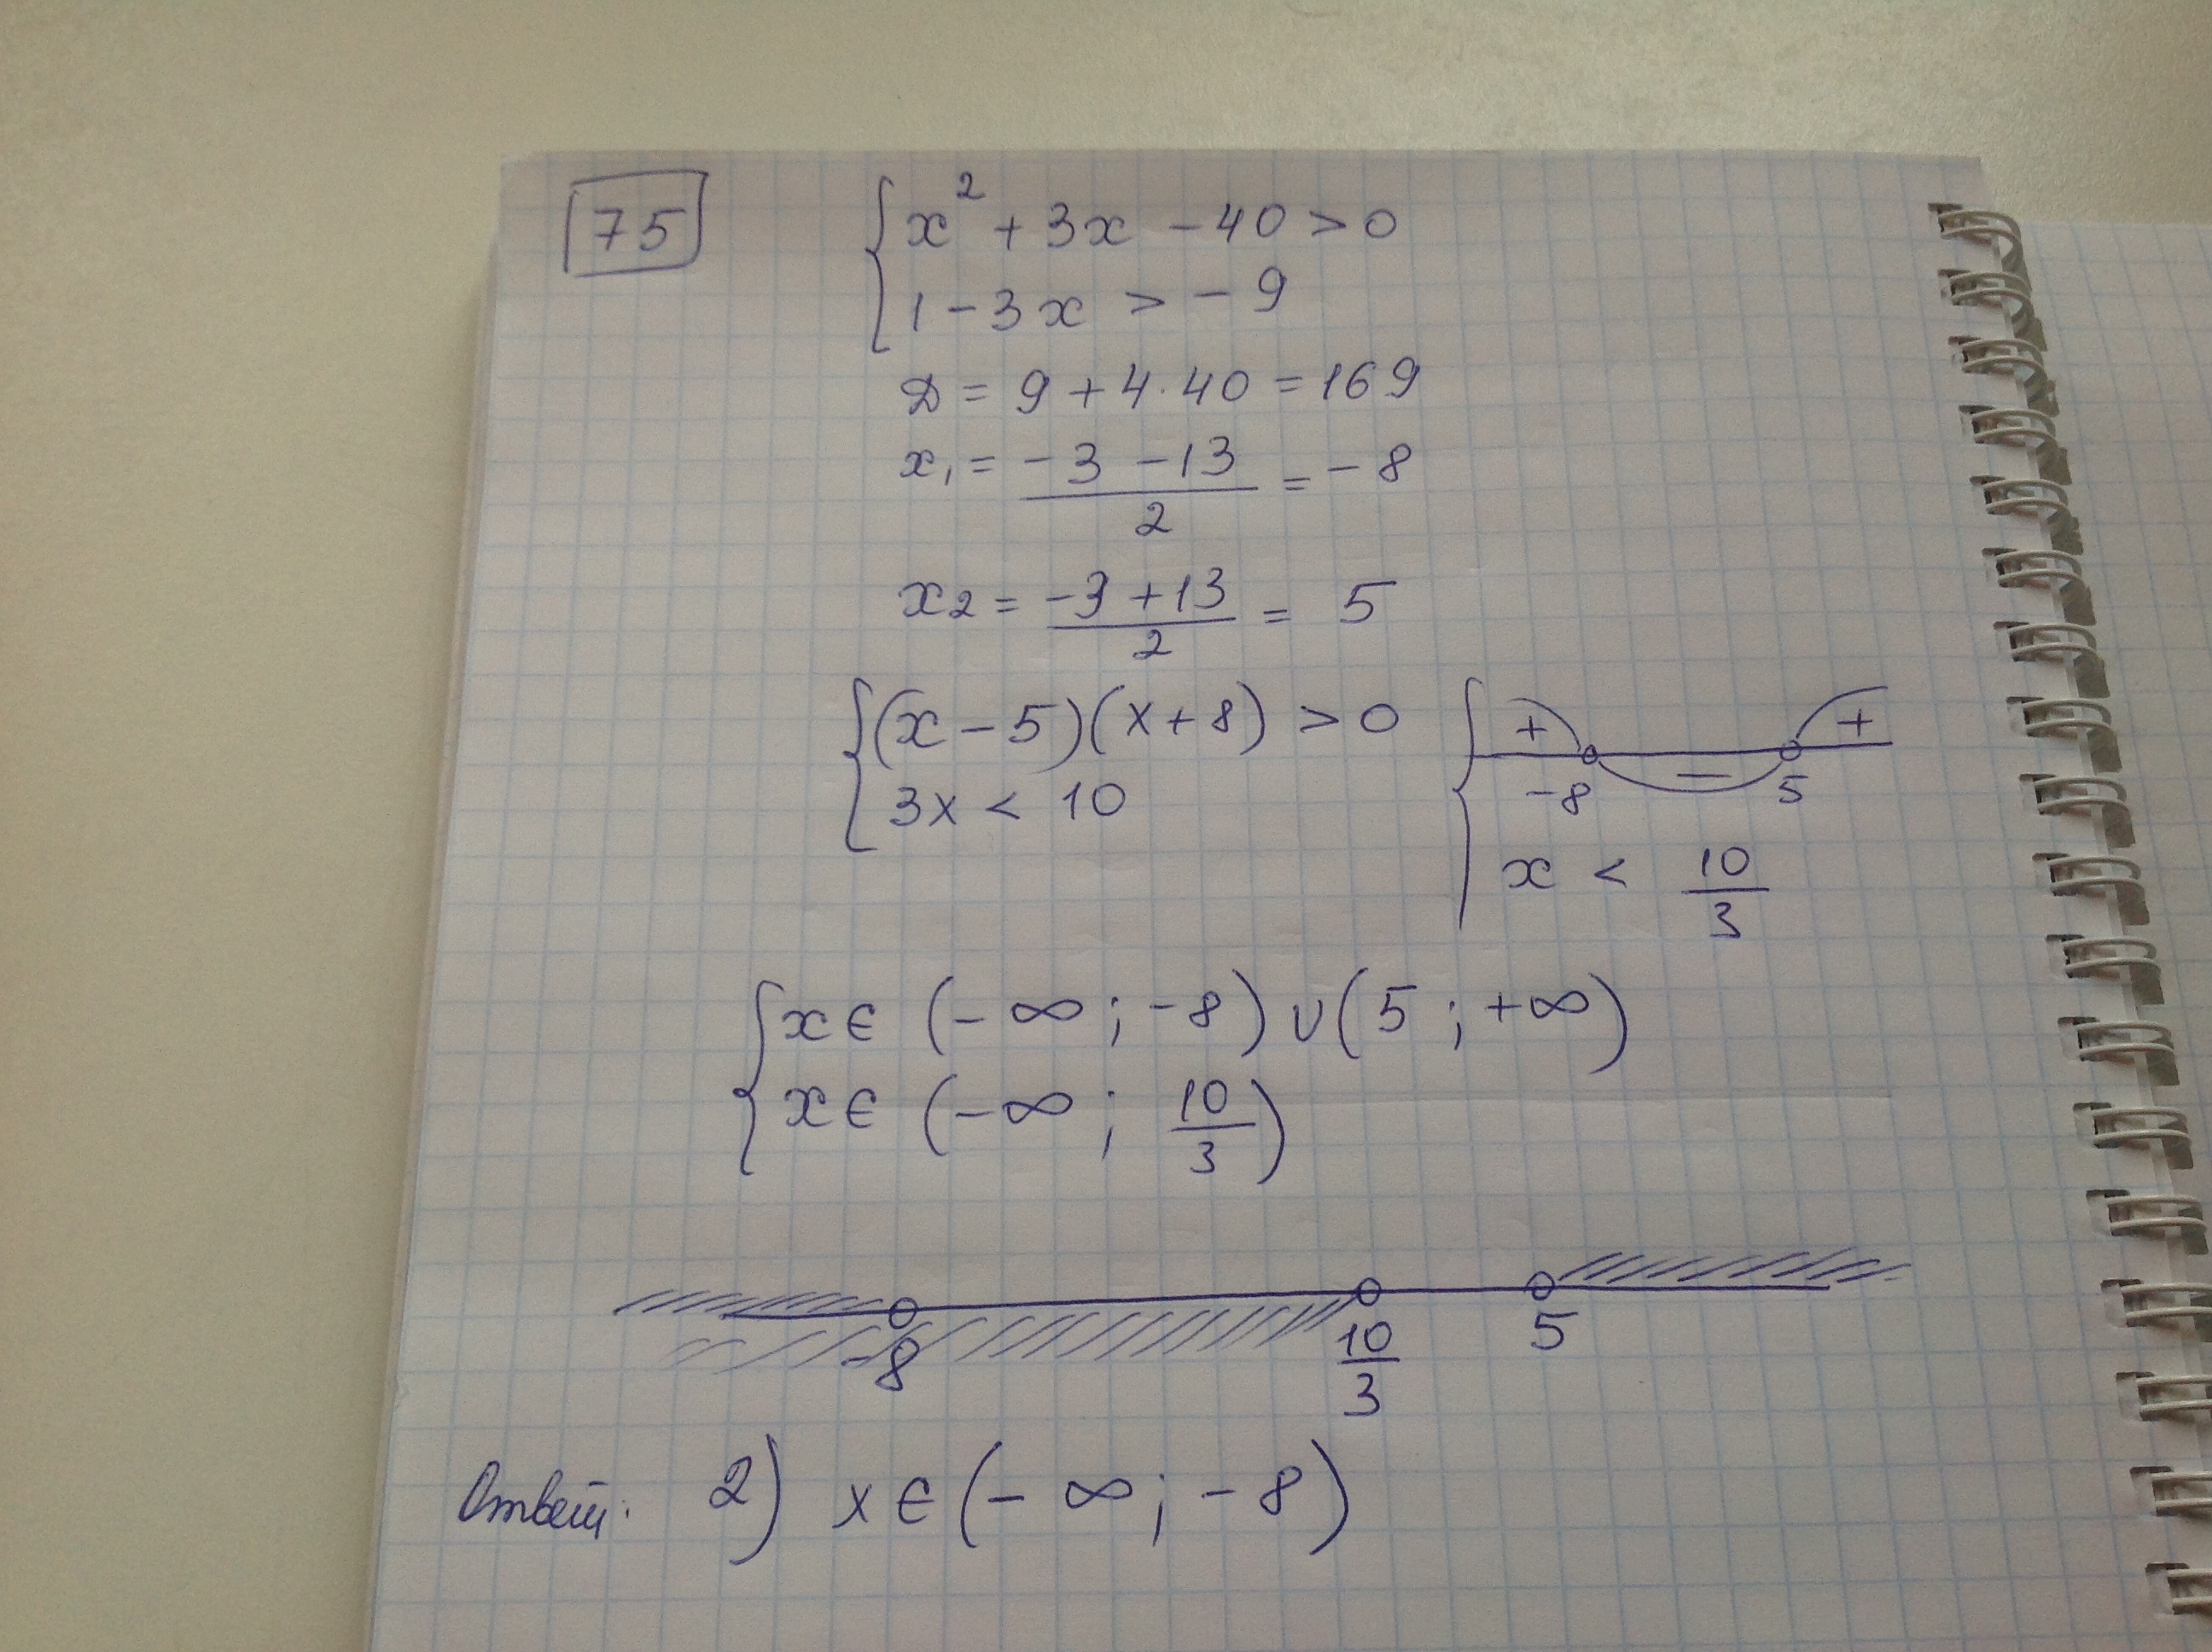 75
{ x² + 3x - 40 > 0
1 - 3x > - 9
D = 9 + 4 · 40 = 169
x₁ = (-3 - 13)/2 = - 8
x₂ = (-3 + 13)/2 = 5
{ (x - 5)(x + 8) > 0
3x < 10
{ + - +
-8 5
x < 10/3
{ x ∈ (- ∞ ; - 8) ∪ (5 ; +∞)
x ∈ (- ∞ ; 10/3)
-8 10/3 5
Ответ: 2) x ∈ (- ∞ ; - 8)